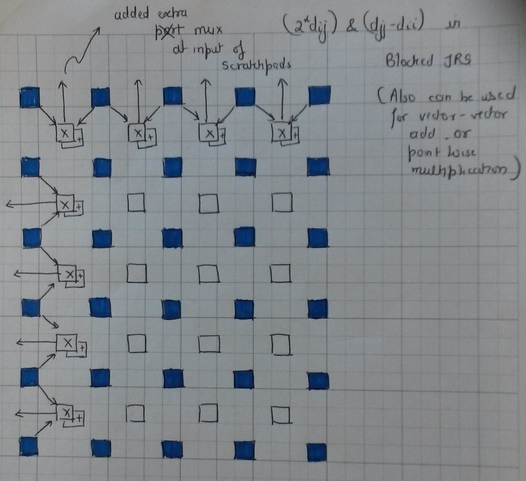 added extra
mux
at input of
scratchpads
(2*dij) & (djj-dii) in
Blocked JRS
(Also can be used
for vector-vector
add, or
point wise
multiplication)
x +
x +
x +
x +
x +
x +
x +
x +